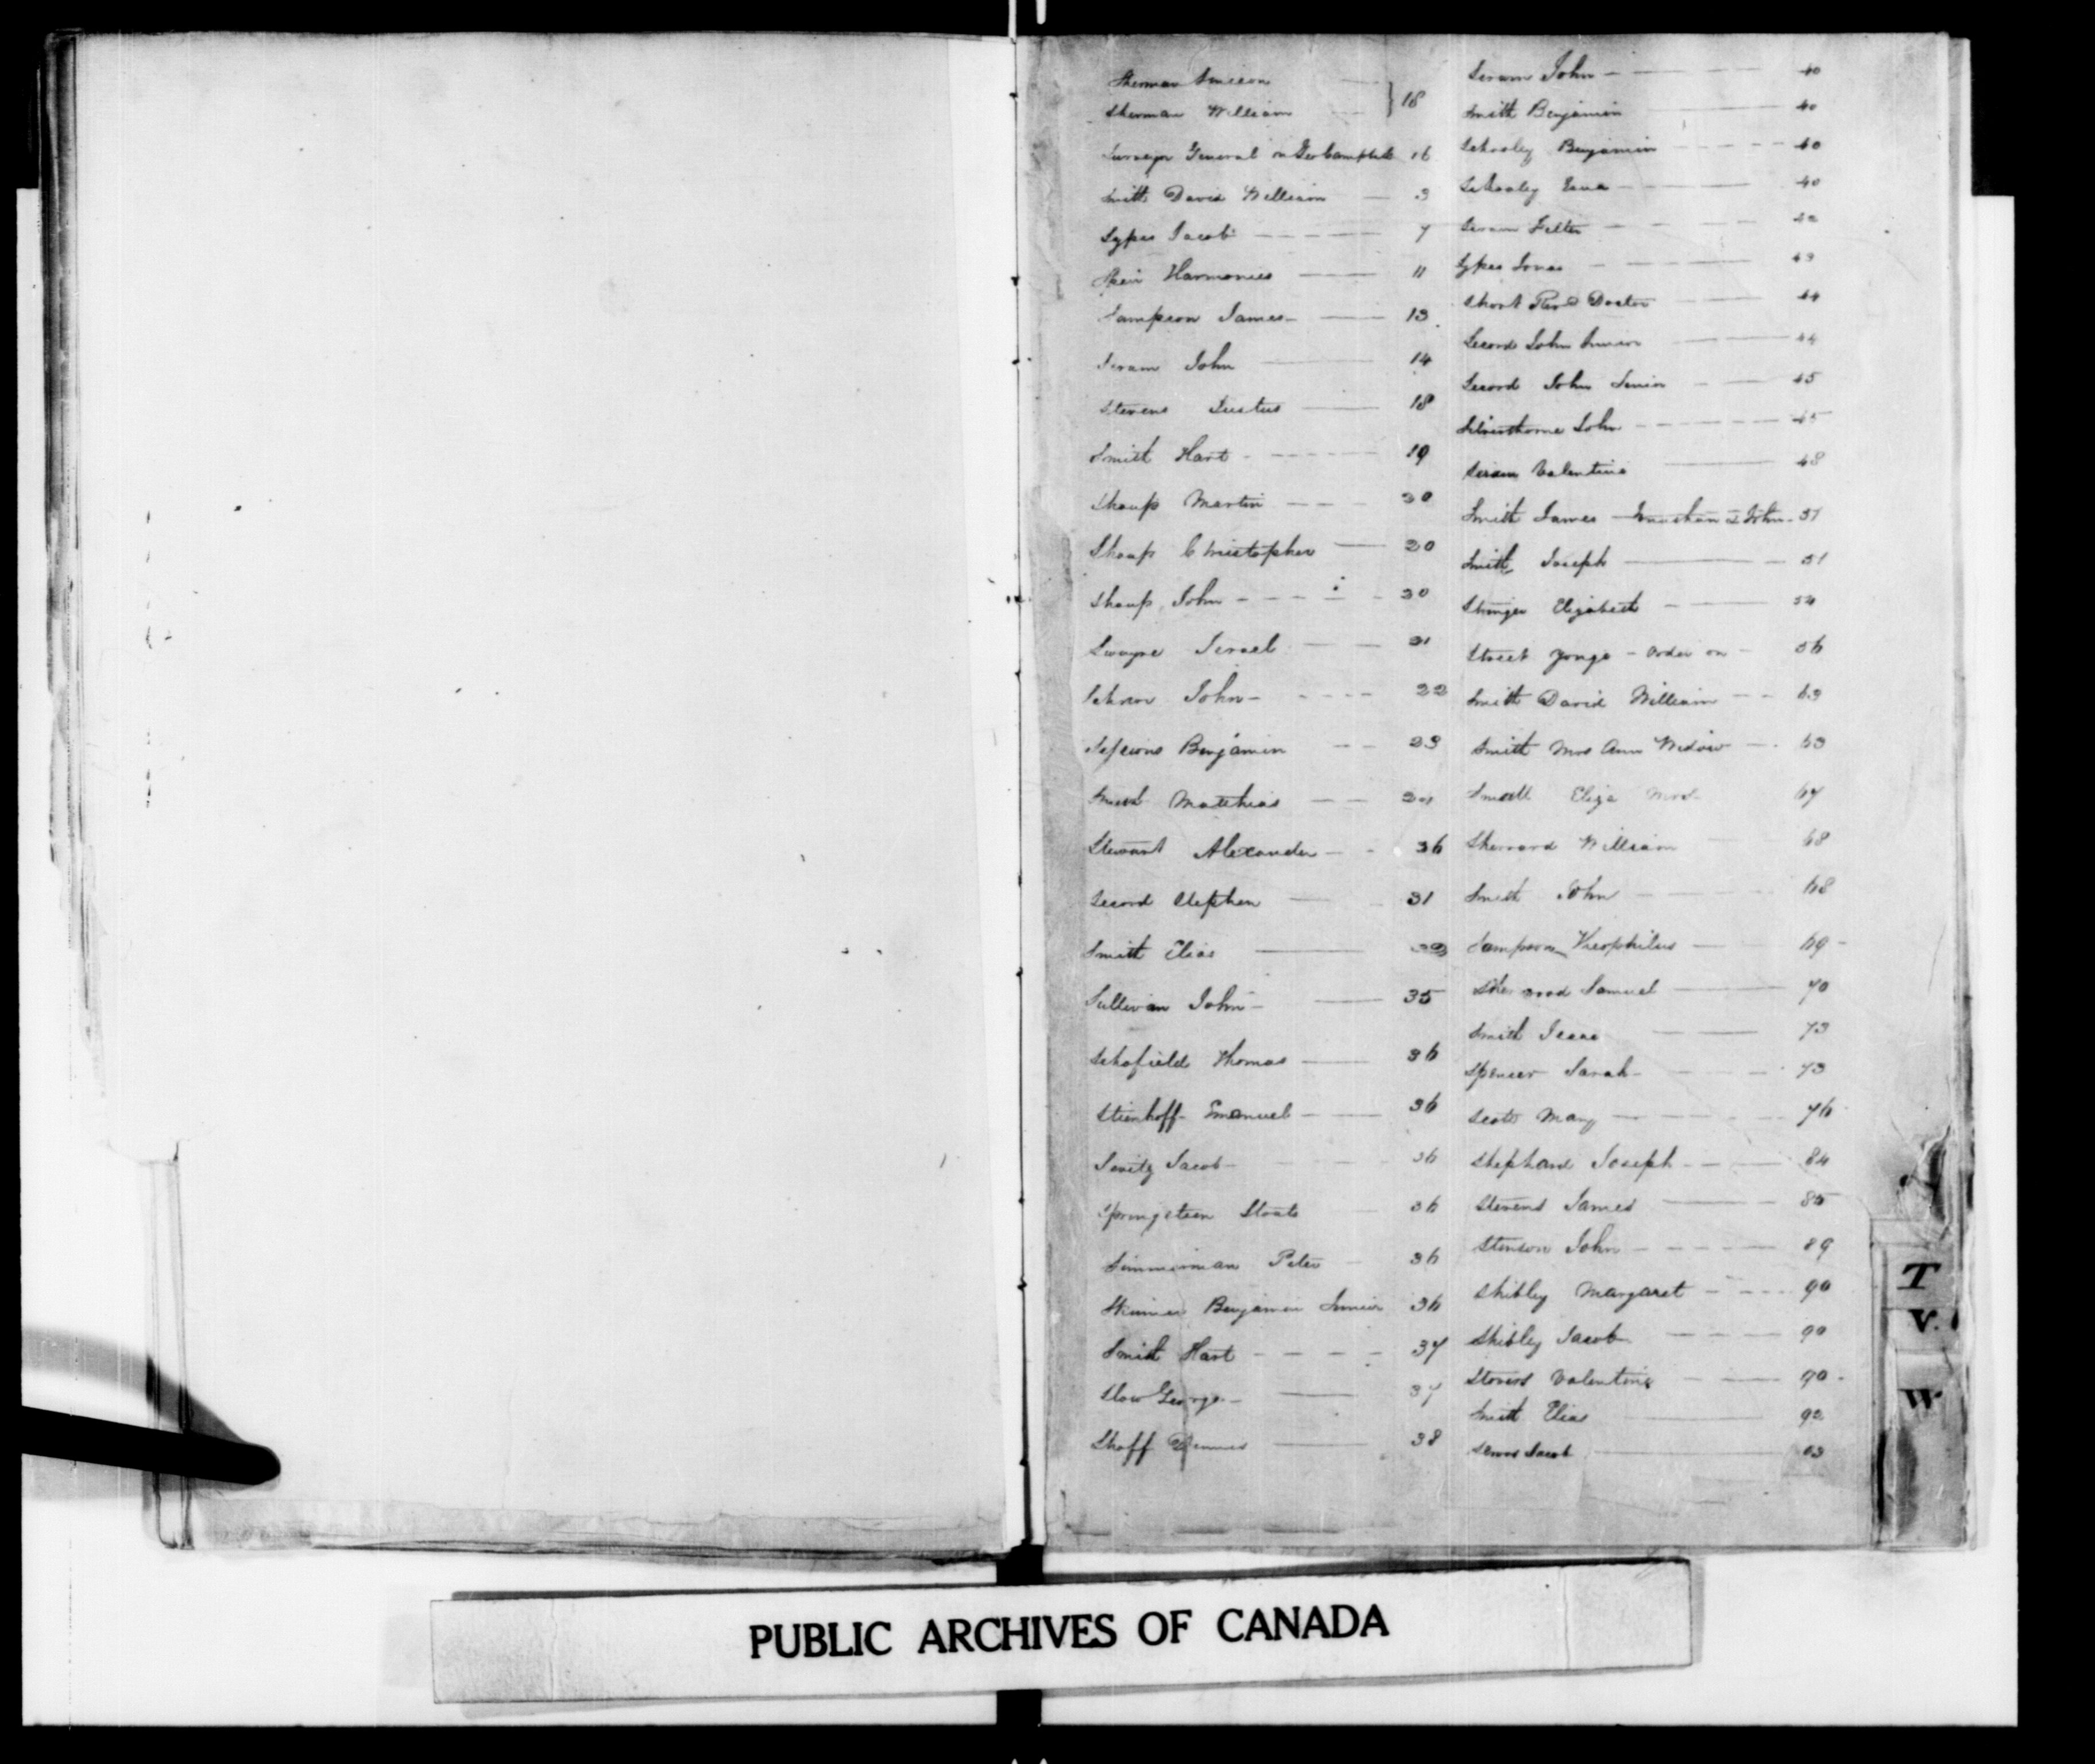 Sherman
Sherman William 18
Surveyor General on Geo Campbell 16
Smith David William 3
Sypes Jacob 7
Harmonius 11
Sampson James 13
Seram John 14
Stevens Justus 18
Smith Hart 19
Shoup Martin 20
Shoup Christopher 20
Shoup John 20
Swayze Israel 21
John 22
Sessions Benjamin 23
Matthias
Stewart Alexander 36
Secord Stephen 31
Smith Elias
Sullivan John 35
Schofield Thomas 36
Stienhoff Emanuel 36
Savitz Jacob 36
Springsteen Staats 36
Simmerman Peter 36
Skinner Benjamin Junior 36
Smith Hart 37
Slow George 37
Shoff Dennis 38
Seram John 40
Smith Benjamin 40
Schooley Benjamin 40
Schooley 40
Seram
Sypes Jonas 43
Short Revd Doctor 44
Secord John Junior 44
Secord John Senior 45
Silverthorne John 45
Seram Valentine 48
Smith James Jonathan & John 51
Smith Joseph 51
Stringer Elizabeth 54
Street Yonge - Order on 56
Smith David William 63
Smith Mrs Ann Widow 63
Small Eliza Mrs 67
Sherrard William 68
Smith John 68
Sampson Theophilus 69
Sherwood Samuel 70
Smith Isaac 73
Spencer Sarah 73
Scott Mary 76
Shephard Joseph 84
Stevens James 85
Stinson John 89
Shibley Margaret 90
Shibley Jacob 90
Stovers Valentine 90
Smith Elias 92
Jacob
T
V.
W
PUBLIC ARCHIVES OF CANADA